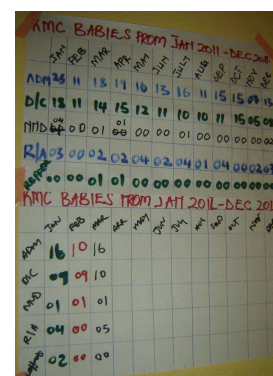 KMC BABIES FROM JAN 2011-DEC 201
JAN FEB MAR APR MAY JUN JULY AUG SEP OCT NOV DEC
ADM 25 11 13 17 16 13 16 11 15 15 07
D/C 18 11 14 15 12 11 10 10 11 15 05
NND 00 01 01 00 00 01 00 00 00 00
R/A 03 00 02 02 04 02 04 01 04 00 02
00 00 01 01 00 00 00 00 00 00 00
KMC BABIES FROM JAN 2012-DEC 201
JAN FEB MAR APR MAY JUN JUL AUG SEP OCT NOV
ADM 16 10 16
D/C 09 09 10
NND 01 01 01
R/A 04 00 05
02 00 00